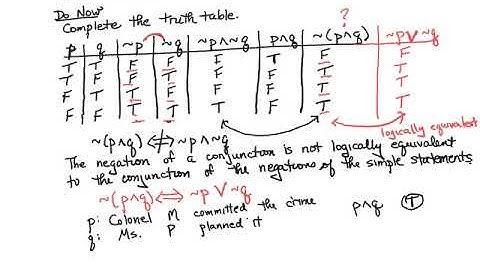 Do Now
Complete the truth table.
?
p q ~p ~q ~p∧~q p∧q ~(p∧q) ~p∨~q
T T F F F T F F
T F F T F F T T
F T T F F F T T
F F T T T F T T
logically equivalent
~(p∧q) ⇎ ~p∧~q
The negation of a conjunction is not logically equivalent
to the conjunction of the negations of the simple statements
~(p∧q) ⟺ ~p∨~q
p: Colonel M committed the crime p∧q T
q: Ms. P planned it